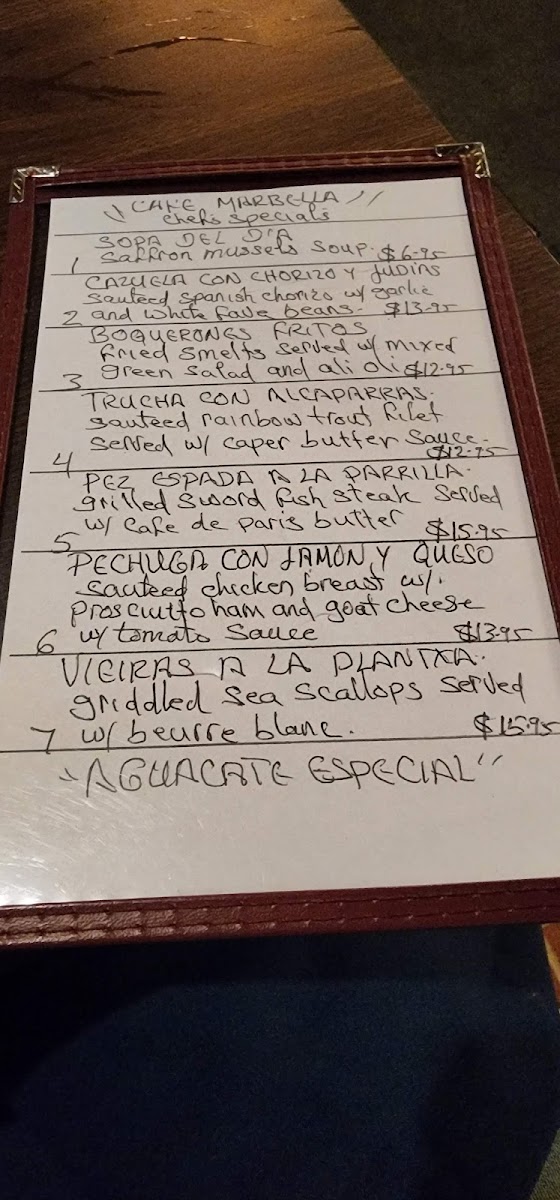 \\ CAFE MARBELLA //
chefs specials
SOPA DEL DIA
1 saffron mussels soup. $6.95
CAZUELA CON CHORIZO Y JUDIAS
sauteed spanish chorizo w/ garlic
2 and white fave beans. $13.95
BOQUERONES FRITOS
fried smelts served w/ mixed
3 green salad and ali oli $12.95
TRUCHA CON ALCAPARRAS.
sauteed rainbow trout filet
served w/ caper butter sauce.
4 $12.95
PEZ ESPADA A LA PARRILLA.
grilled sword fish steak served
w/ cafe de paris butter
5 $15.95
PECHUGA CON JAMON Y QUESO
sauteed chicken breast w/.
prosciutto ham and goat cheese
6 w/ tomato sauce $13.95
VIEIRAS A LA PLANTXA.
griddled sea scallops served
7 w/ beurre blanc. $15.95
"AGUACATE ESPECIAL"